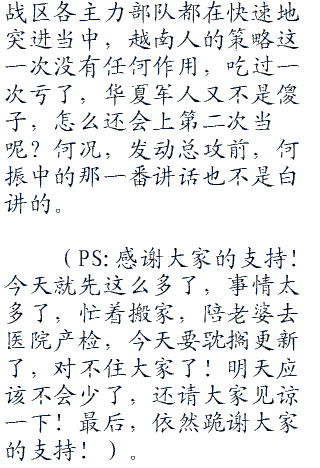 战区各主力部队都在快速地
突进当中，越南人的策略这
一次没有任何作用，吃过一
次亏了，华夏军人又不是傻
子，怎么还会上第二次当
呢？何况，发动总攻前，何
振中的那一番讲话也不是白
讲的。
（PS:感谢大家的支持！
今天就先这么多了，事情太
多了，忙着搬家，陪老婆去
医院产检，今天要耽搁更新
了，对不住大家了！明天应
该不会少了，还请大家见谅
一下！最后，依然跪谢大家
的支持！）。